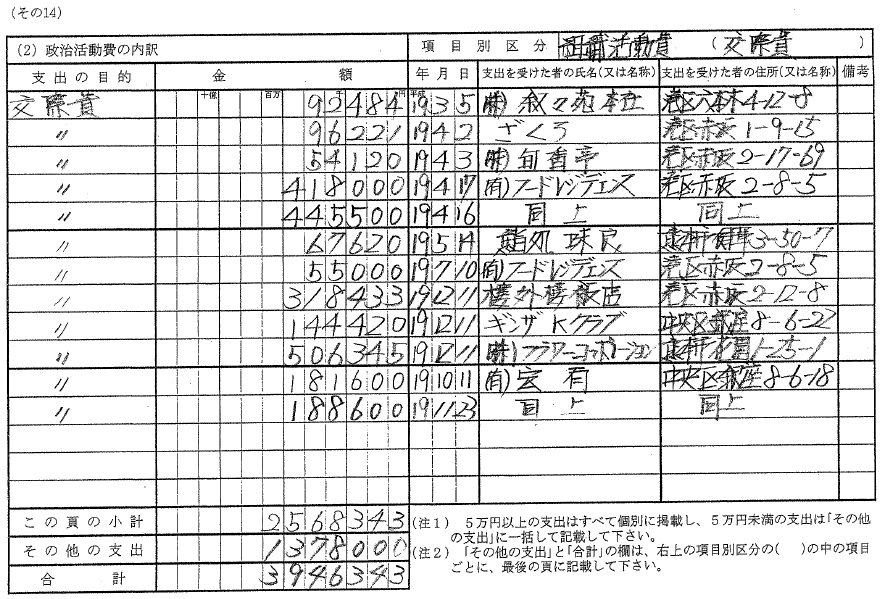 (その14)
(2) 政治活動費の内訳 項目別区分 組織活動費 (交際費)
支出の目的 金額 年月日 支出を受けた者の氏名(又は名称) 支出を受けた者の住所(又は名称) 備考
十億 百万 千 円 平成
交際費 92484 19 3 5 ㈱叙々苑本社 港区六本木4-12-8
〃 96221 19 4 2 ざくろ 港区赤坂1-9-15
〃 54120 19 4 3 ㈱旬香亭 港区赤坂2-17-69
〃 418000 19 4 17 ㈲フードレジデンス 港区赤坂2-8-5
〃 445500 19 4 16 同上 同上
〃 67620 19 5 14 鮨処 3-30-7
〃 55000 19 7 10 ㈲フードレジデンス 港区赤坂2-8-5
〃 318433 19 12 11 楼外楼飯店 港区赤坂2-12-8
〃 144420 19 12 11 ギンザKクラブ 中央区銀座8-6-22
〃 506345 19 12 11 ㈱フラワーコーポレーション 1-25-1
〃 181600 19 10 11 ㈲宏有 中央区銀座8-6-18
〃 188600 19 11 23 同上 同上
この頁の小計 2568343
その他の支出 1378000
合計 3946343
(注1) 5万円以上の支出はすべて個別に掲載し、5万円未満の支出は「その他
の支出」に一括して記載して下さい。
(注2) 「その他の支出」と「合計」の欄は、右上の項目別区分の( )の中の項目
ごとに、最後の頁に記載して下さい。